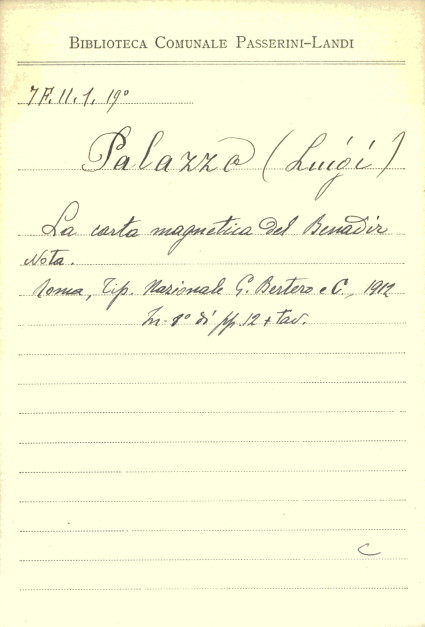 BIBLIOTECA COMUNALE PASSERINI-LANDI
7F.II.1.19°
Palazzo (Luigi)
La carta magnetica del Benadir
Nota.
Roma, Tip. Nazionale G. Bertero e C., 1912
In-8° di pp. 12 + tav.
C